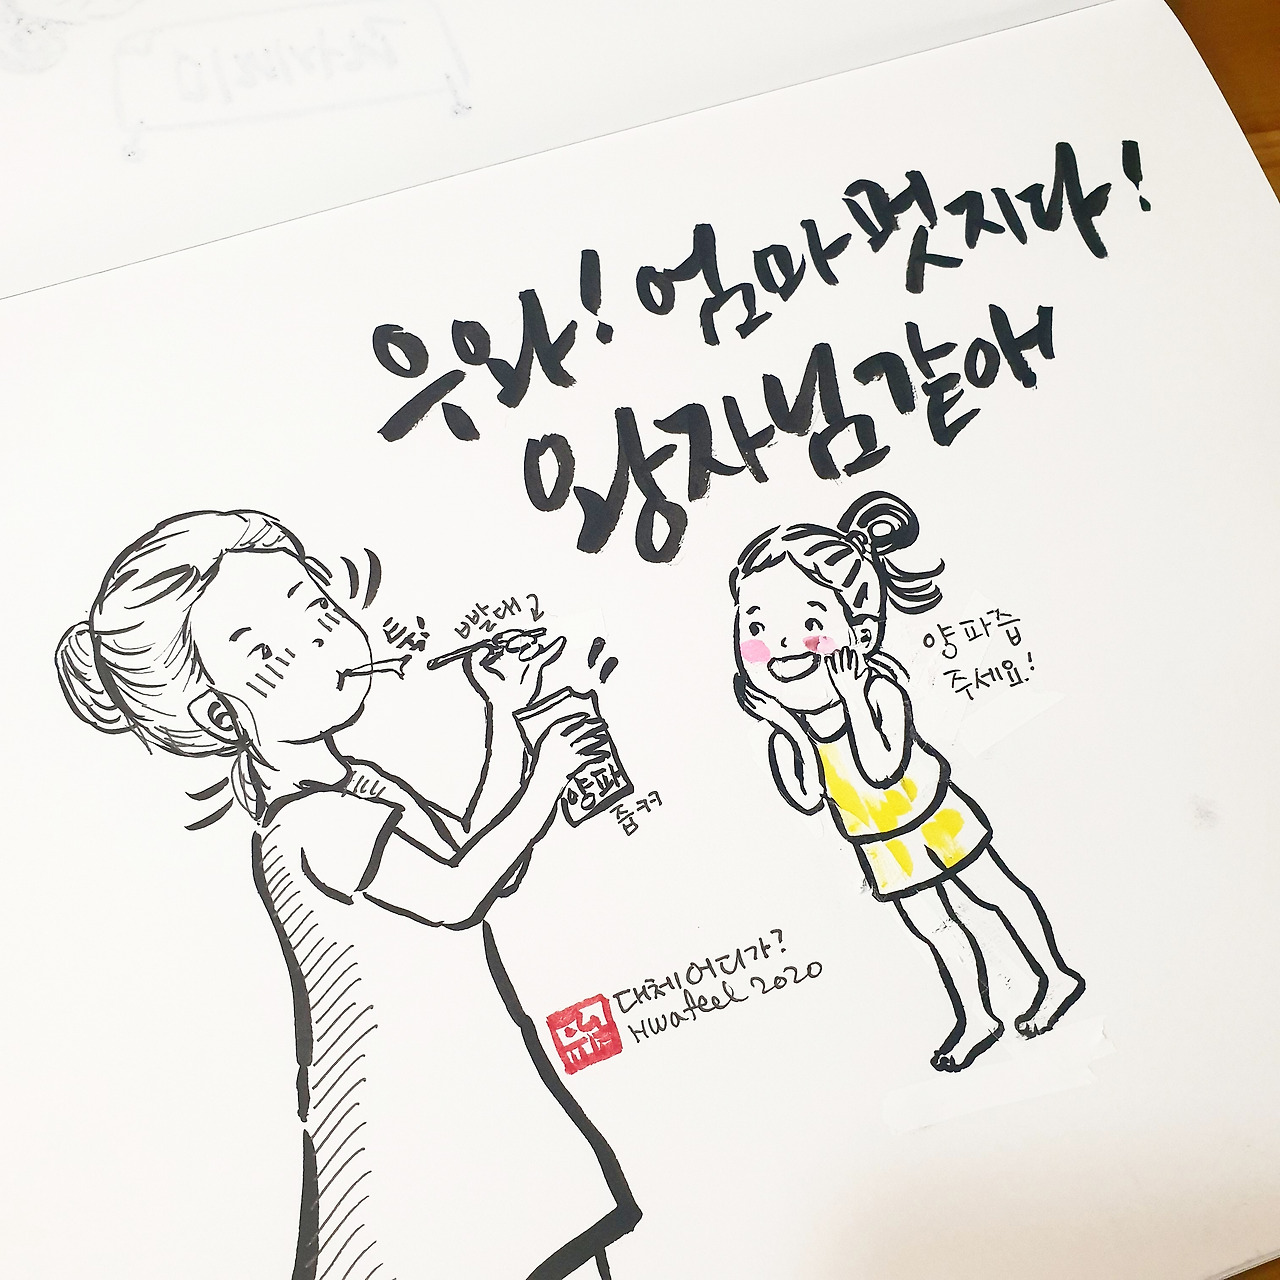 우와! 엄마 멋지다!
왕자님 같애
툭!
빨대고
양파
즙ㅋㅋ
양파즙
주세요!
대체어디가?
Hwafeel 2020